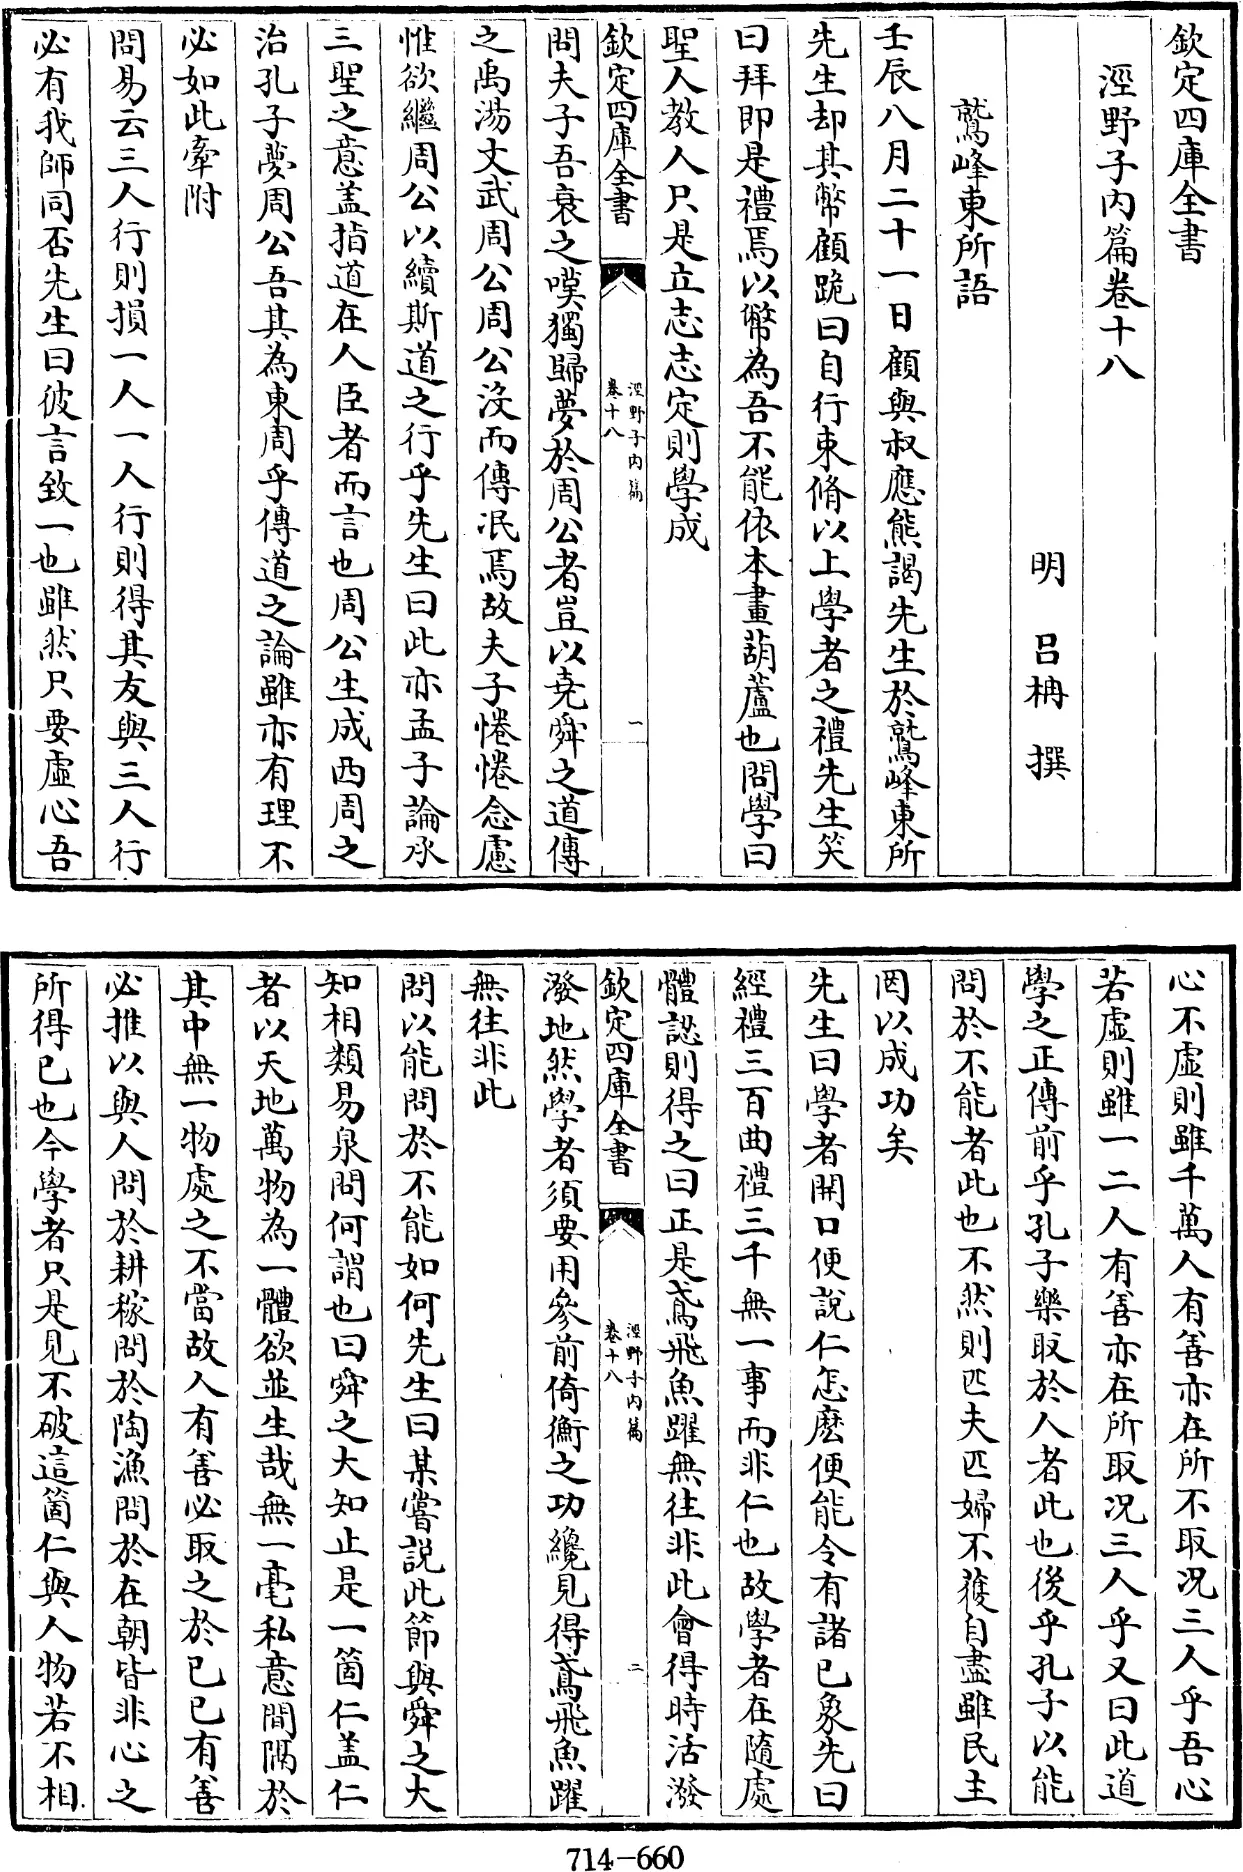 欽定四庫全書
涇野子内篇卷十八
明 吕柟 撰
鷲峰東所語
壬辰八月二十一日顧與叔應熊謁先生於鷲峰東所
先生却其幣顧跪曰自行束脩以上學者之禮先生笑
曰拜即是禮焉以幣為吾不能依本畫葫蘆也問學曰
聖人教人只是立志志定則學成
欽定四庫全書
涇野子内篇
卷十八
一
問夫子吾衰之嘆獨歸夢於周公者豈以堯舜之道傳
之禹湯文武周公周公没而傳泯焉故夫子惓惓念慮
惟欲繼周公以續斯道之行乎先生曰此亦孟子論承
三聖之意盖指道在人臣者而言也周公生成西周之
治孔子夢周公吾其為東周乎傳道之論雖亦有理不
必如此牽附
問易云三人行則損一人一人行則得其友與三人行
必有我師同否先生曰彼言致一也雖然只要虛心吾
心不虛則雖千萬人有善亦在所不取况三人乎吾心
若虛則雖一二人有善亦在所取况三人乎又曰此道
學之正傳前乎孔子樂取於人者此也後乎孔子以能
問於不能者此也不然則匹夫匹婦不獲自盡雖民主
罔以成功矣
先生曰學者開口便說仁怎麽便能令有諸已象先曰
經禮三百曲禮三千無一事而非仁也故學者在隨處
體認則得之曰正是鳶飛魚躍無往非此會得時活潑
欽定四庫全書
涇野子内篇
卷十八
二
潑地然學者須要用參前倚衡之功纔見得鳶飛魚躍
無往非此
問以能問於不能如何先生曰某嘗説此節與舜之大
知相類易泉問何謂也曰舜之大知止是一箇仁盖仁
者以天地萬物為一體欲並生哉無一毫私意間隔於
其中無一物處之不當故人有善必取之於已已有善
必推以與人問於耕稼問於陶漁問於在朝皆非心之
所得已也今學者只是見不破這箇仁與人物若不相
714-660